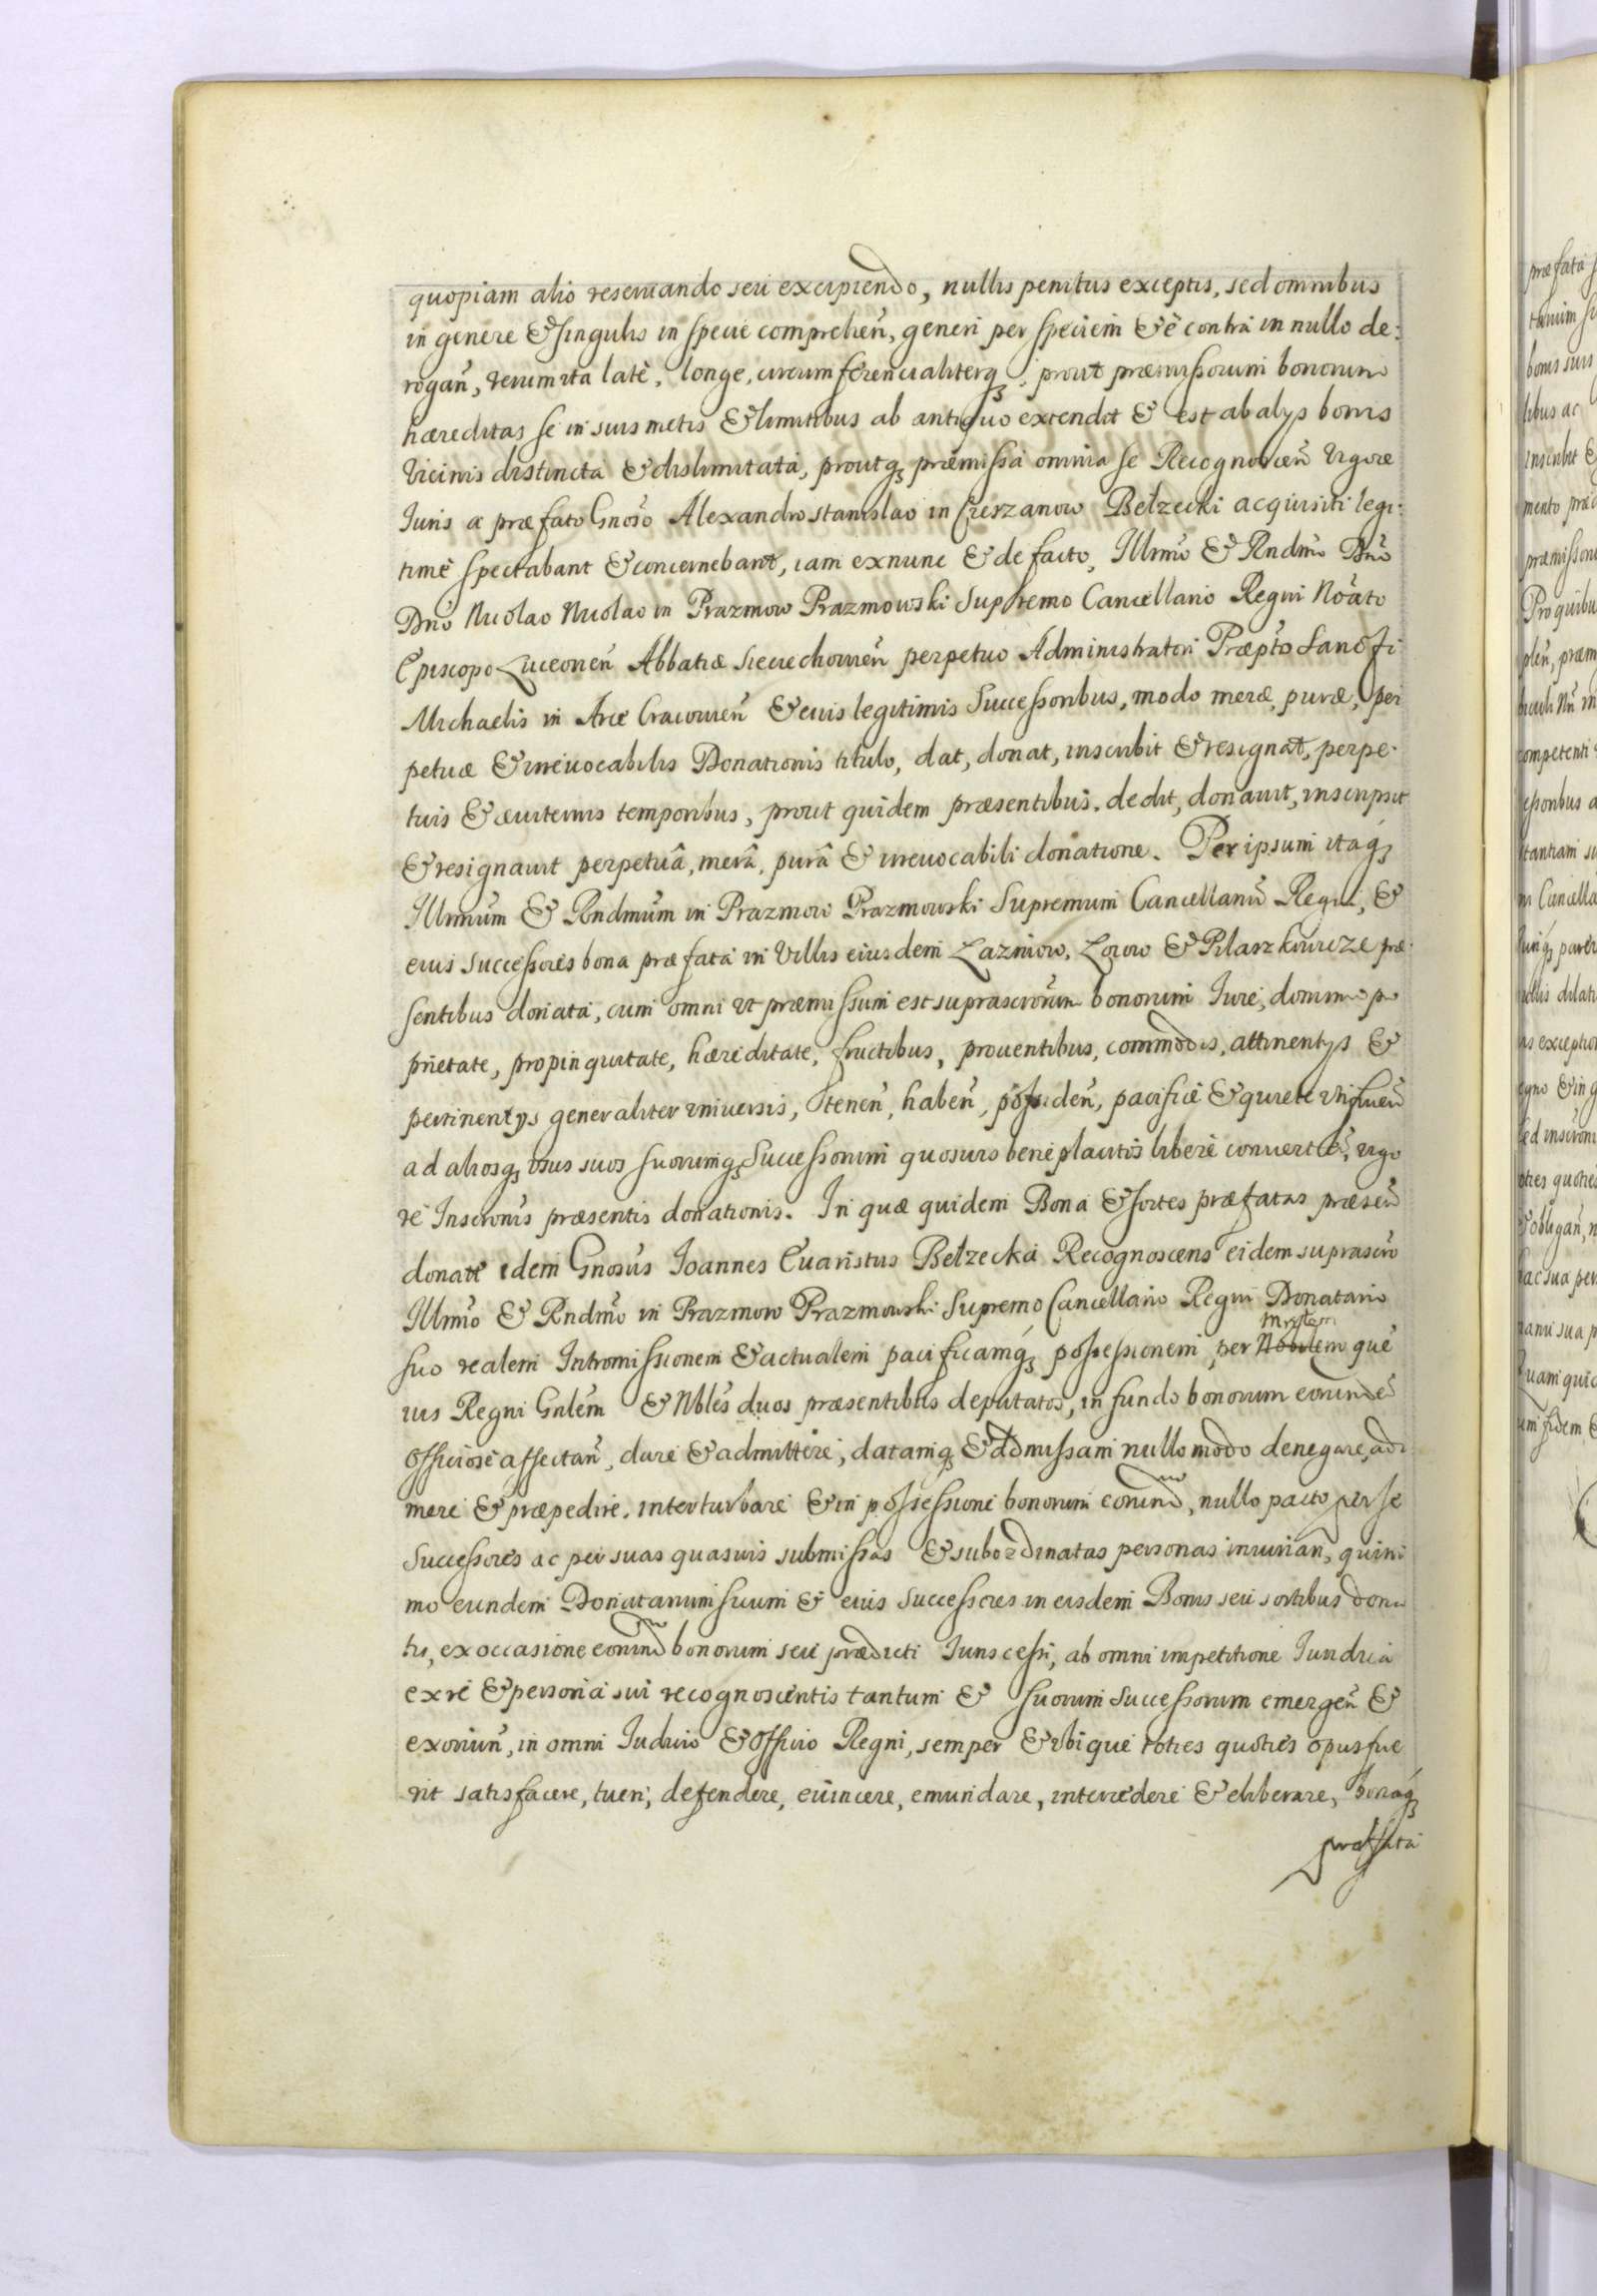 quopiam alio reseruando seu excipiendo, nullis penitus exceptis, sed omnibus
in genere & singulis in specie comprehen̄, generi per speciem & è contrà in nullo de:
rogan̄, verum ita latè, longe, circumferencialiterq;, prout præmissorum bonorum
hæreditas se in suis metis & limitibus ab antiquo extendit & est ab alys bonis
Vicinis distincta & dislimitata, proutq; præmissa omnia se Recognoscen̄ Vigore
Iuris a præfato Gnoso Alexandro Stanislao in Cieszanow Bełzecki acquisiti legi:
timè spectabant & concernebant, iam exnunc & de facto, Illmo & Rndmo Dno
Dno Nicolao Nicolao in Prazmow Prazmowski Supremo Cancellario Regni Noato
Episcopo Luceoneñ Abbatiæ Sieciechovien̄ perpetuo Administratori Præpto Sancti
Michaelis in Arce Cracovien̄ & eius legitimis Successoribus, modo meræ, puræ, per
petuæ & irreuocabilis Donationis titulo, dat, donat, inscribit & resignat, perpe-
tuis & æuiternis temporibus, prout quidem præsentibus dedit, donauit, inscripsit
& resignauit perpetuâ, merâ, purâ & irreuocabili donatione. Per ipsum itaq;
Illmum & Rndmum in Prazmow Prazmowski Supremum Cancellariū Regni, &
eius successores bona præfata in Villis eiusdem Lazniow, Lozow & Pilaszkowicze præ-
sentibus donata, cum omni vt præmissum est suprascrorum bonorum Iure, dominio pro
prietate, propinquitate, hæreditate, fructibus, prouentibus, commodis, attinentys &
pertinentys generaliter vniuersis, tenen̄, haben̄, possiden̄, pacifice & quiete vtifruen̄
ad aliosq; vsus suos suorumq; Successorum quosuis beneplacitos libere conuerten̄, vigo
re Inscronis præsentis donationis. In quæ quidem Bona & sortes præfatas præsen̄
donatæ idem Gnosus Ioannes Euaristus Bełzecki Recognoscens eidem suprascro
Illmo & Rndmo in Prazmow Prazmowski Supremo Cancellario Regni Donatario
suo realem Intromissionem & actualem pacificamq; possessionem, per Nobilem Mrỹtem que
uis Regni Gnlem & Nbles duos præsentibus deputatos, in fundo bonorum eorundē
officiose affectan̄, dare & admittere, datamq; & admissam nullo modo denegare, adi
mere & præpedire, interturbare & in possessione bonorum eorund, nullo pacto per se
Successores ac per suas quasuis submissas & subordinatas personas iniurian̄, quini
mo eundem Donatarium suum & eius successores in eisdem Bonis seu sortibus dona
tis, ex occasione eorund bonorum seu prædicti Iuris cessi, ab omni impetitione Iuridica
ex re & persona sui recognoscentis tantum & suorum Successorum emergen̄ &
exoriun̄, in omni Iudicio & Officio Regni, semper & vbique toties quoties opus fue
rit satisfacere, tueri, defendere, euincere, emundare, intercedere & eliberare, bonaq;
præfata